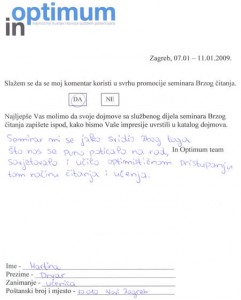 optimum
in
Zagreb, 07.01 – 11.01.2009.
Slažem se da se moj komentar koristi u svrhu promocije seminara Brzog čitanja.
DA NE
Najljepše Vas molimo da svoje dojmove sa službenog dijela seminara Brzog
čitanja zapišete ispod, kako bismo Vaše impresije uvrstili u katalog dojmova.
Seminar mi se jako svidio zbog toga
što nas se puno poticalo na rad, In Optimum team
savjetovalo i učilo optimističnom pristupanju
tom načinu čitanja i učenja.
Ime - Martina
Prezime -
Zanimanje - učenica
Poštanski broj i mjesto - Novi Zagreb